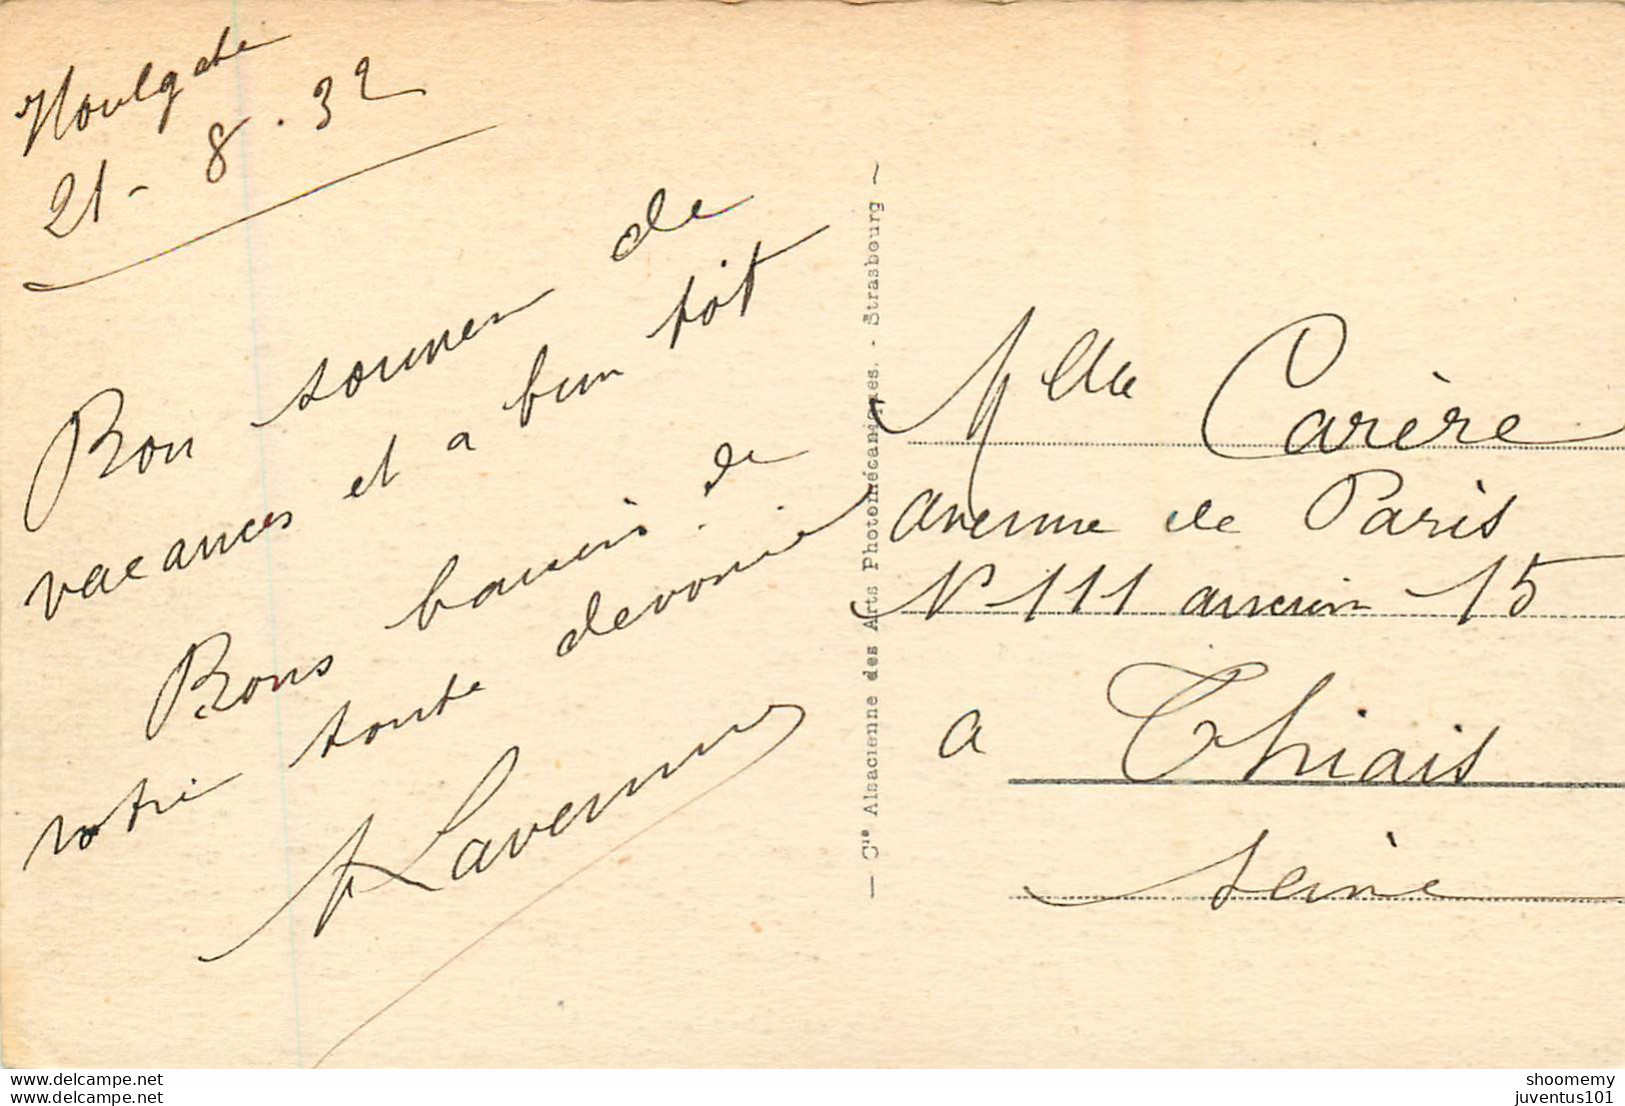 Houlgate
21 - 8 . 32
Bon souvenir de
vacances et a bien tôt
Bons baisers de
votre toute dévouée
Lavenne
— Cie Alsacienne des Arts Photomécaniques. - Strasbourg —
Mlle Carère
avenue de Paris
N° 111 ancien 15
a Thiais
Seine
delcampe.net
juventus101
shoomemy
juventus101